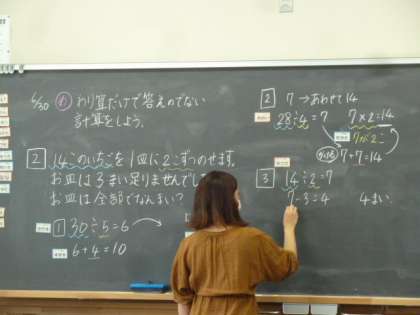 6/30 め わり算だけで答えのでない
計算をしよう。
2 14このいちごを1皿に2こずつのせます。
お皿は3まい足りませんでし
お皿は全部でなんまい?
1 30÷5=6
6+4=10
2 7→あわせて14
28÷4=7 7×2=14
7が2こ
7+7=14
3 14÷2=7
7-3=4 4まい